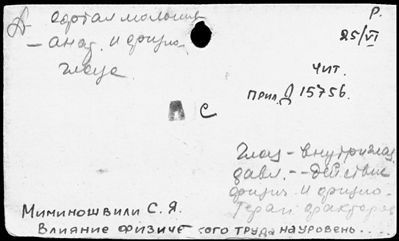 Р.
25/VI
– анат. и физио.
чит.
прил. Д 15756.
А С
Глаз – внутриглаз.
давл. -- действие
физич. и физио.
терап факторов
Миминошвили С. Я.
Влияние физичес ого труда на уровень ....